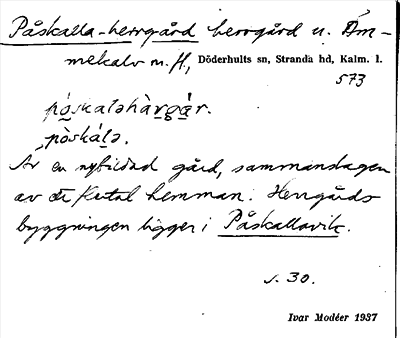 Påskalla-herrgård herrgård u. Em-
mekalv m. fl., Döderhults sn, Stranda hd, Kalm. l.
573
pó̱skaləhàrgá̱r.
pòskálə.
Är en nybildad gård, sammanslagen
av ett fåtal hemman. Herrgårds
byggningen ligger i Påskallavik.
s. 30.
Ivar Modéer 1937